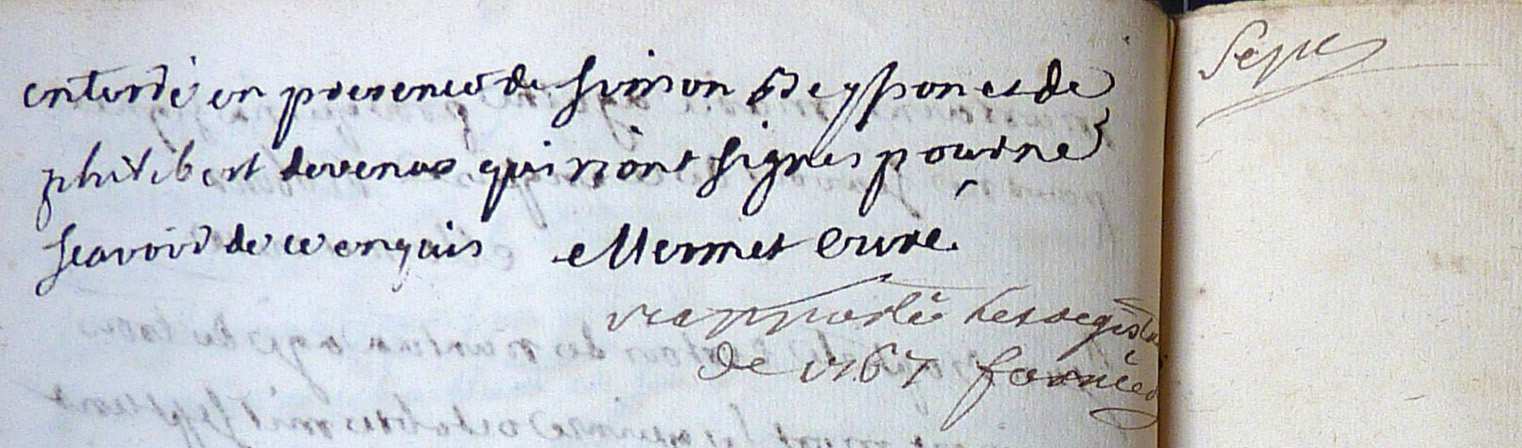 enterré en presence de Simon Beysson et de
philibert devenas qui n'ont signés pour ne
scavoir de ce enquis Mermet Curé.
rapporté Le registre
de 1767